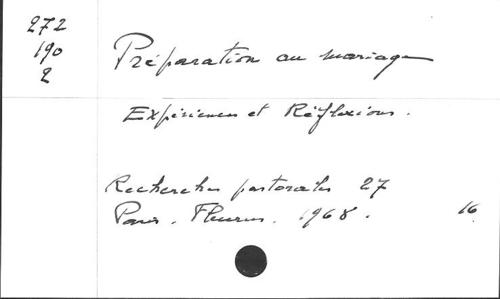 272
190
2
Préparation au mariage
Expériences et Réflexions.
Recherches pastorales 27
Paris. Fleurus. 1968. 16